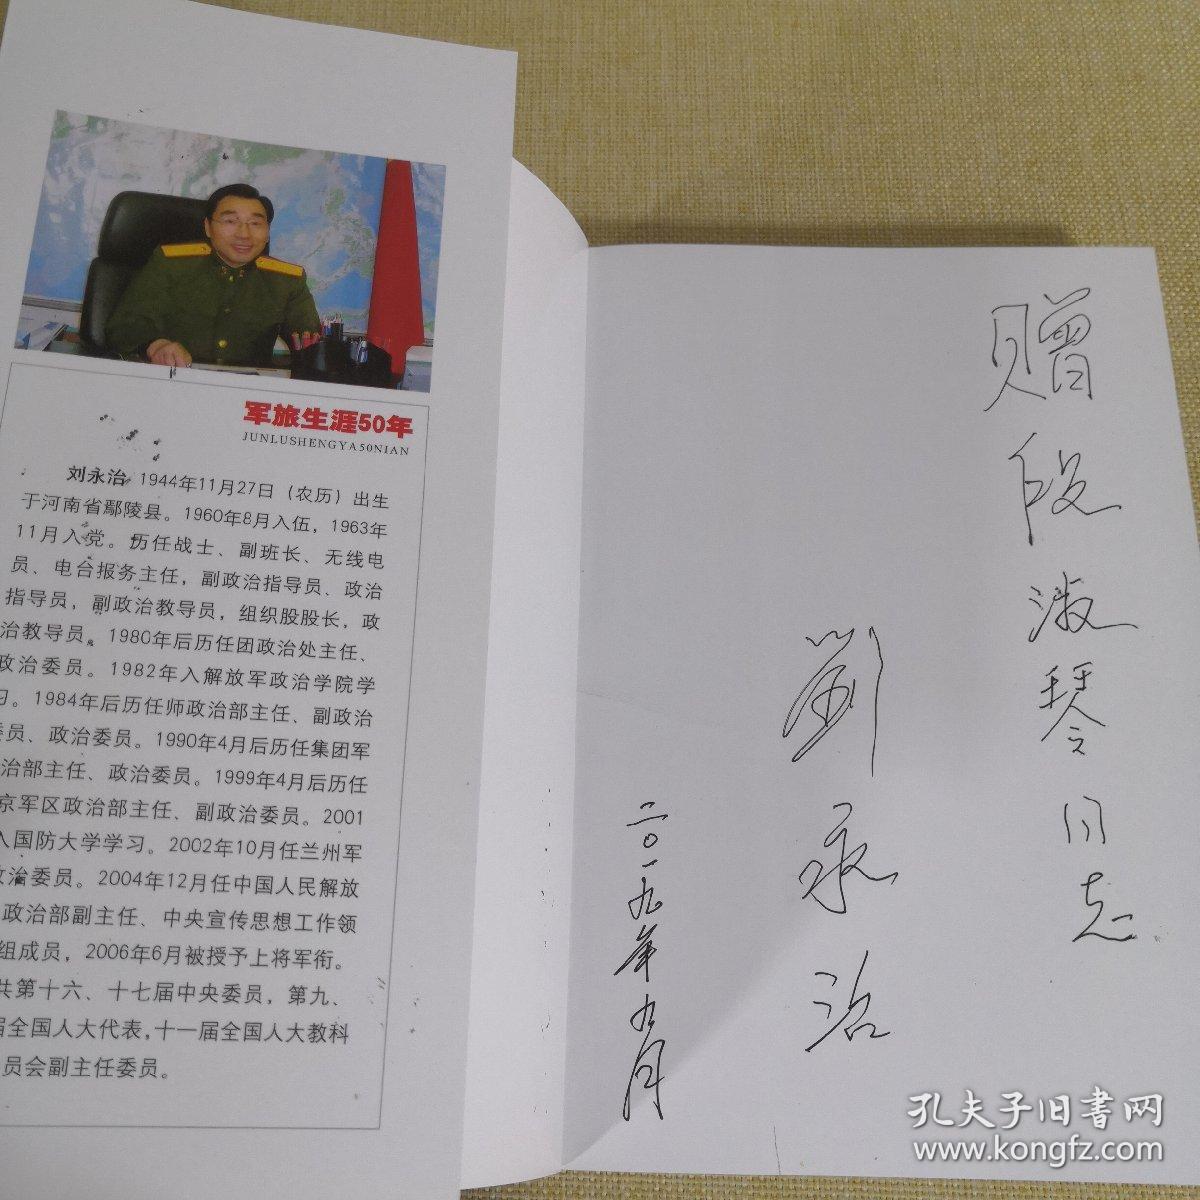 军旅生涯50年
JUNLUSHENGYA50NIAN
刘永治 1944年11月27日（农历）出生
于河南省鄢陵县。1960年8月入伍，1963年
11月入党。历任战士、副班长、无线电
员、电台报务主任，副政治指导员、政治
指导员，副政治教导员，组织股股长，政
治教导员。1980年后历任团政治处主任、
政治委员。1982年入解放军政治学院学
习。1984年后历任师政治部主任、副政治
委员、政治委员。1990年4月后历任集团军
治部主任、政治委员。1999年4月后历任
京军区政治部主任、副政治委员。2001
入国防大学学习。2002年10月任兰州军
政治委员。2004年12月任中国人民解放
政治部副主任、中央宣传思想工作领
组成员，2006年6月被授予上将军衔。
共第十六、十七届中央委员，第九、
届全国人大代表，十一届全国人大教科
员会副主任委员。
赠段淑琴同志
劉永治
二〇一九年九月
孔夫子旧书网
www.kongfz.com